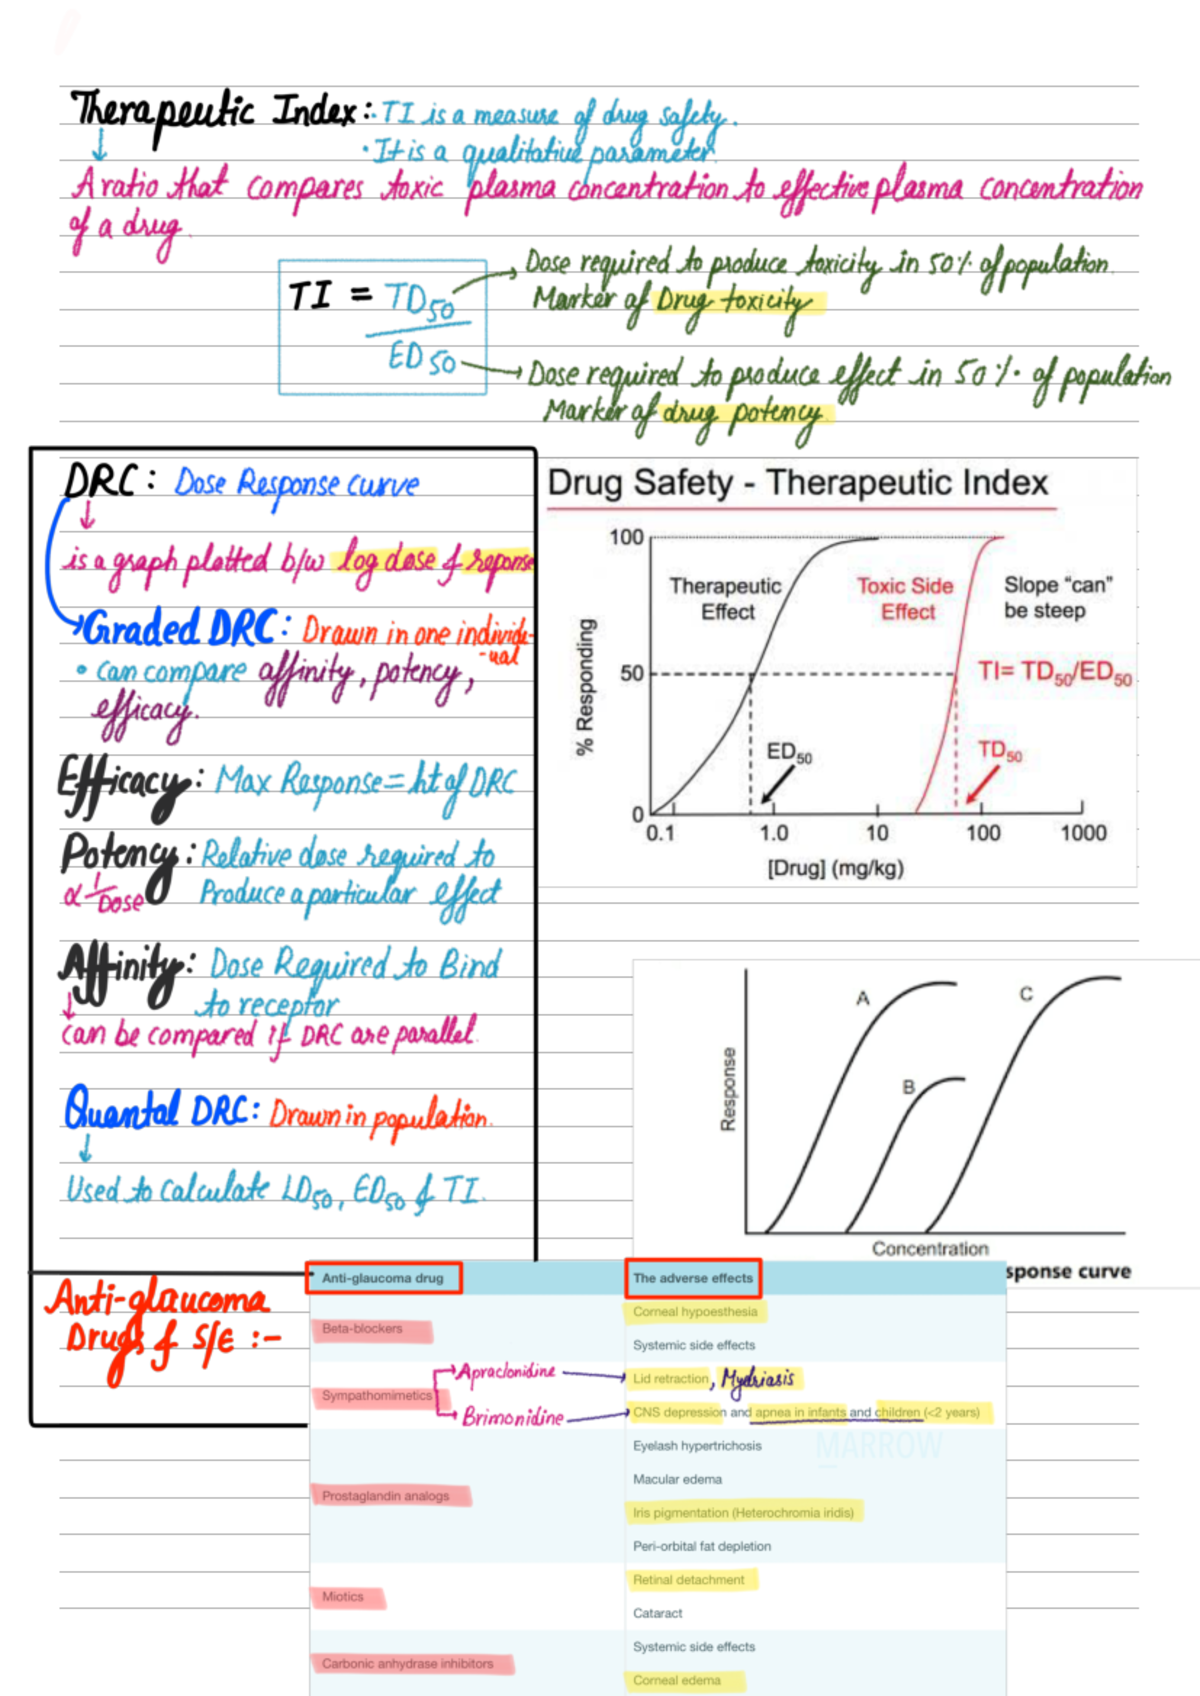 Therapeutic Index: · TI is a measure of drug safety.
· It is a qualitative parameter.
A ratio that compares toxic plasma concentration to effective plasma concentration
of a drug.
TI = TD50 / ED50
Dose required to produce toxicity in 50% of population.
Marker of Drug toxicity
Dose required to produce effect in 50% of population
Marker of drug potency.
DRC: Dose Response curve
is a graph plotted b/w log dose & reponse
Graded DRC: Drawn in one individu-
-ual
• can compare affinity, potency,
efficacy.
Efficacy: Max Response = ht of DRC
Potency: Relative dose required to
α 1/Dose Produce a particular effect
Affinity: Dose Required to Bind
to receptor
can be compared if DRC are parallel.
Quantal DRC: Drawn in population.
Used to calculate LD50, ED50 & TI.
Drug Safety - Therapeutic Index
100
Therapeutic
Effect
Toxic Side
Effect
Slope “can”
be steep
50
TI= TD50/ED50
% Responding
ED50
TD50
0
0.1 1.0 10 100 1000
[Drug] (mg/kg)
A
B
C
Response
Concentration
sponse curve
Anti-glaucoma
Drugs & S/E :-
Anti-glaucoma drug The adverse effects
Beta-blockers
Corneal hypoesthesia
Systemic side effects
Sympathomimetics
Apraclonidine
Lid retraction, Mydriasis
Brimonidine
CNS depression and apnea in infants and children (<2 years)
MARROW
Prostaglandin analogs
Eyelash hypertrichosis
Macular edema
Iris pigmentation (Heterochromia iridis)
Peri-orbital fat depletion
Miotics
Retinal detachment
Cataract
Carbonic anhydrase inhibitors
Systemic side effects
Corneal edema